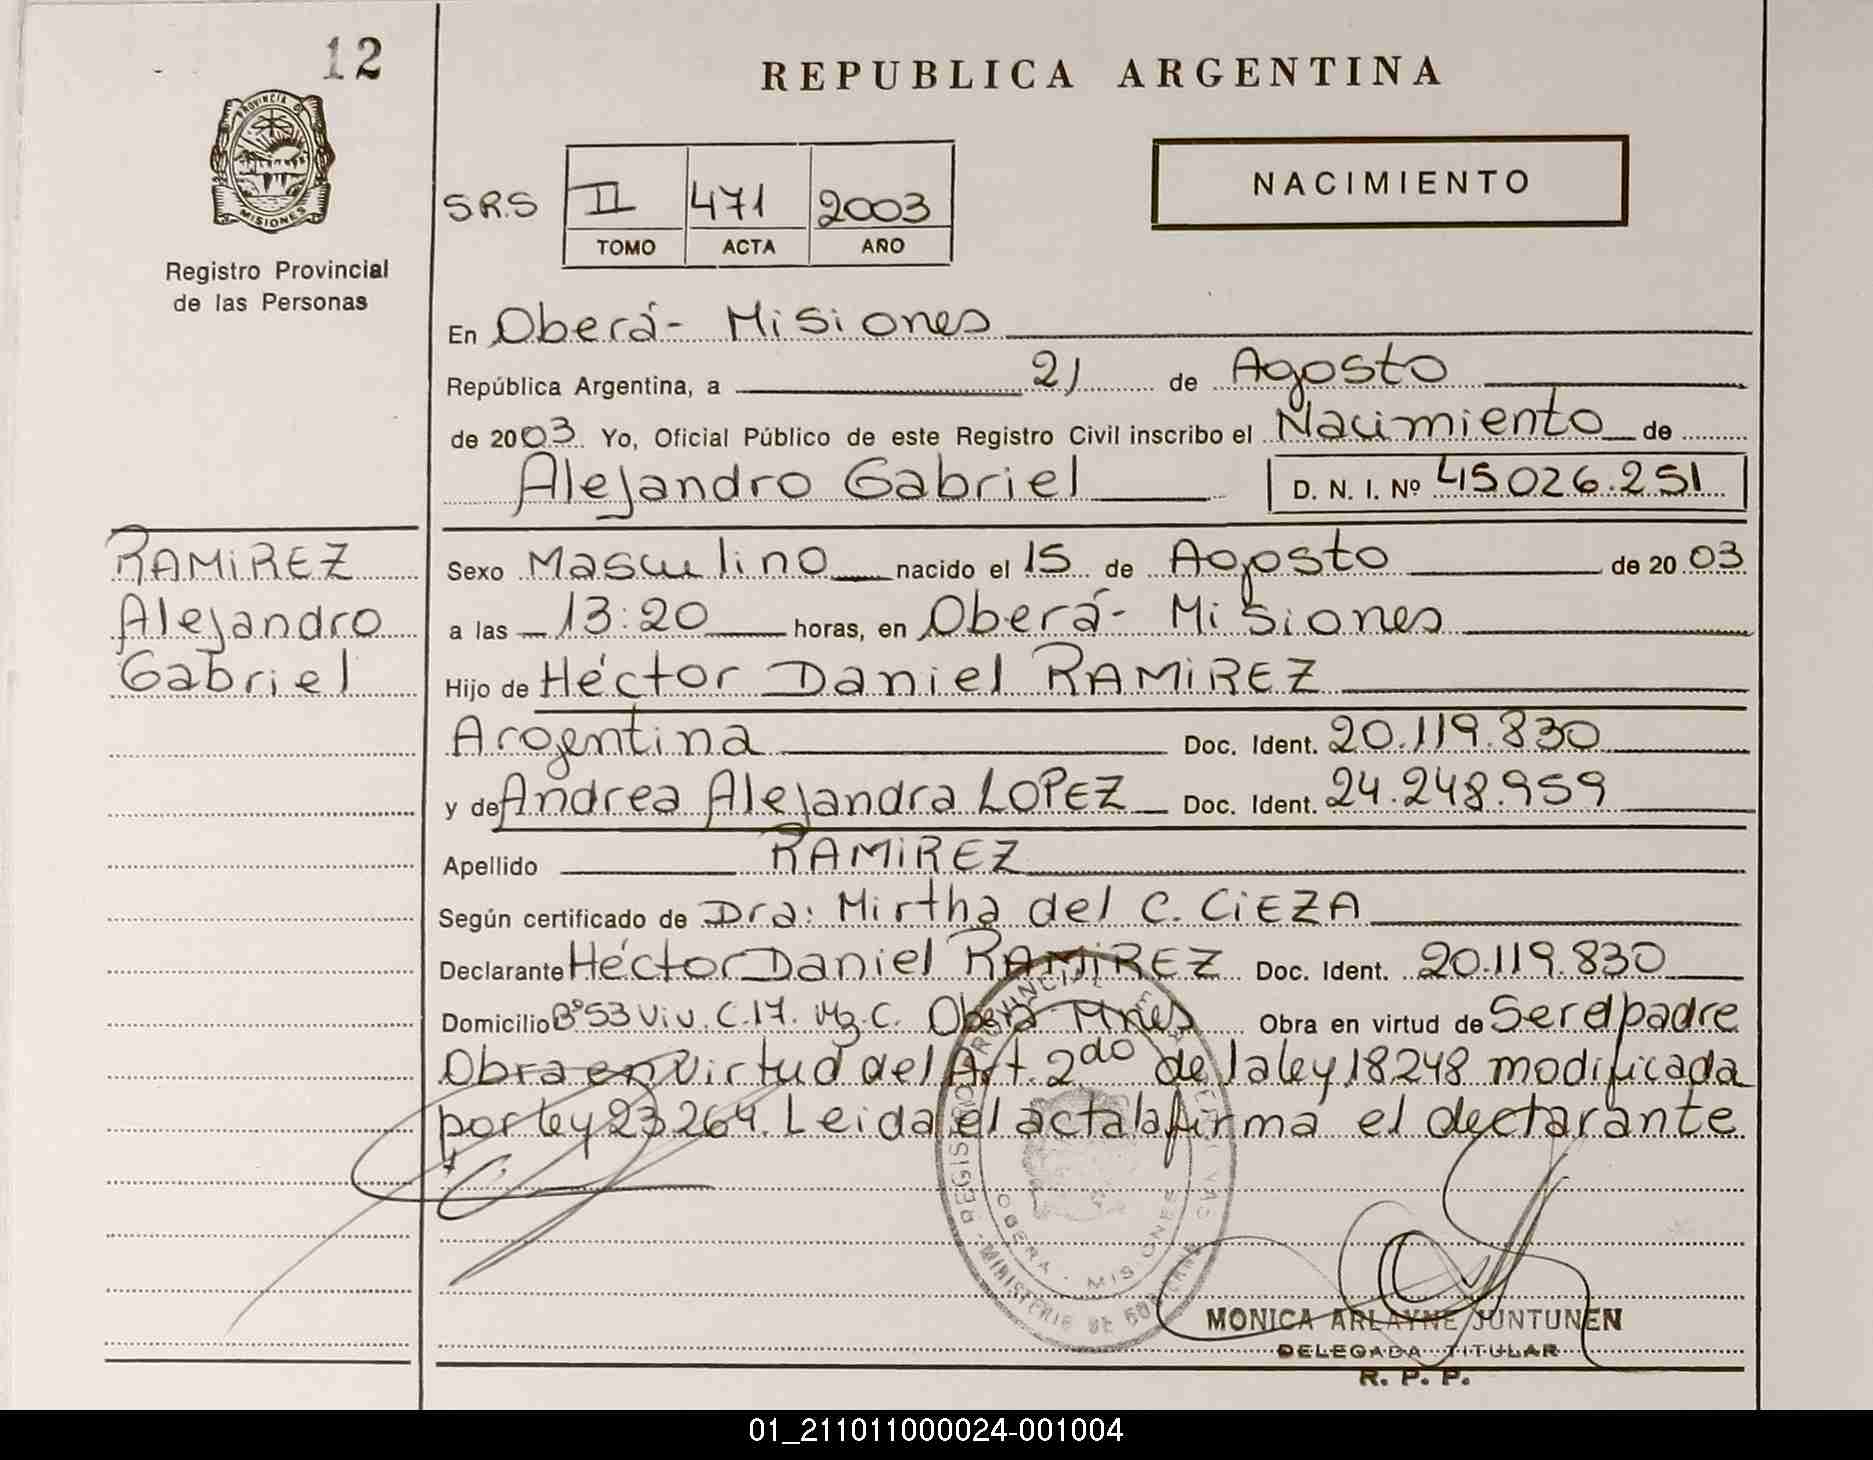 12
PROVINCIA D
MISIONES
Registro Provincial
de las Personas
REPUBLICA ARGENTINA
S.R.S II 471 2003
TOMO ACTA AÑO
NACIMIENTO
En Oberá - Misiones
República Argentina, a 21 de Agosto
de 2003 Yo, Oficial Público de este Registro Civil inscribo el Nacimiento de
Alejandro Gabriel D. N. I. Nº 45.026.251
RAMIREZ
Alejandro
Gabriel
Sexo Masculino nacido el 15 de Agosto de 2003
a las 13:20 horas, en Oberá - Misiones
Hijo de Héctor Daniel RAMIREZ
Argentina Doc. Ident. 20.119.830
y de Andrea Alejandra LOPEZ Doc. Ident. 24.248.959
Apellido RAMIREZ
Según certificado de Dra: Mirtha del C. CIEZA
Declarante Héctor Daniel RAMIREZ Doc. Ident. 20.119.830
Domicilio Bº 53 Viv. C.17. Mz. C. Oberá Mnes Obra en virtud de Ser el padre
Obra en Virtud del Art. 2do de la ley 18248 modificada
por ley 23.264. Leida el acta la firma el declarante
OBERA - MISIONES
MINISTERIO DE GOBIERNO
MONICA ARLAYNE JUNTUNEN
DELEGADA TITULAR
R. P. P.
01_211011000024-001004